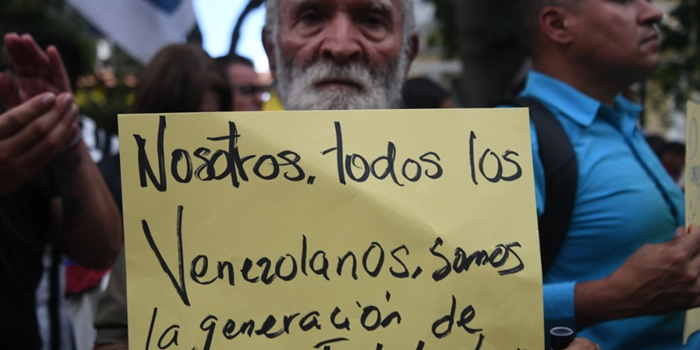 Nosotros, todos los
Venezolanos, somos
la generación de